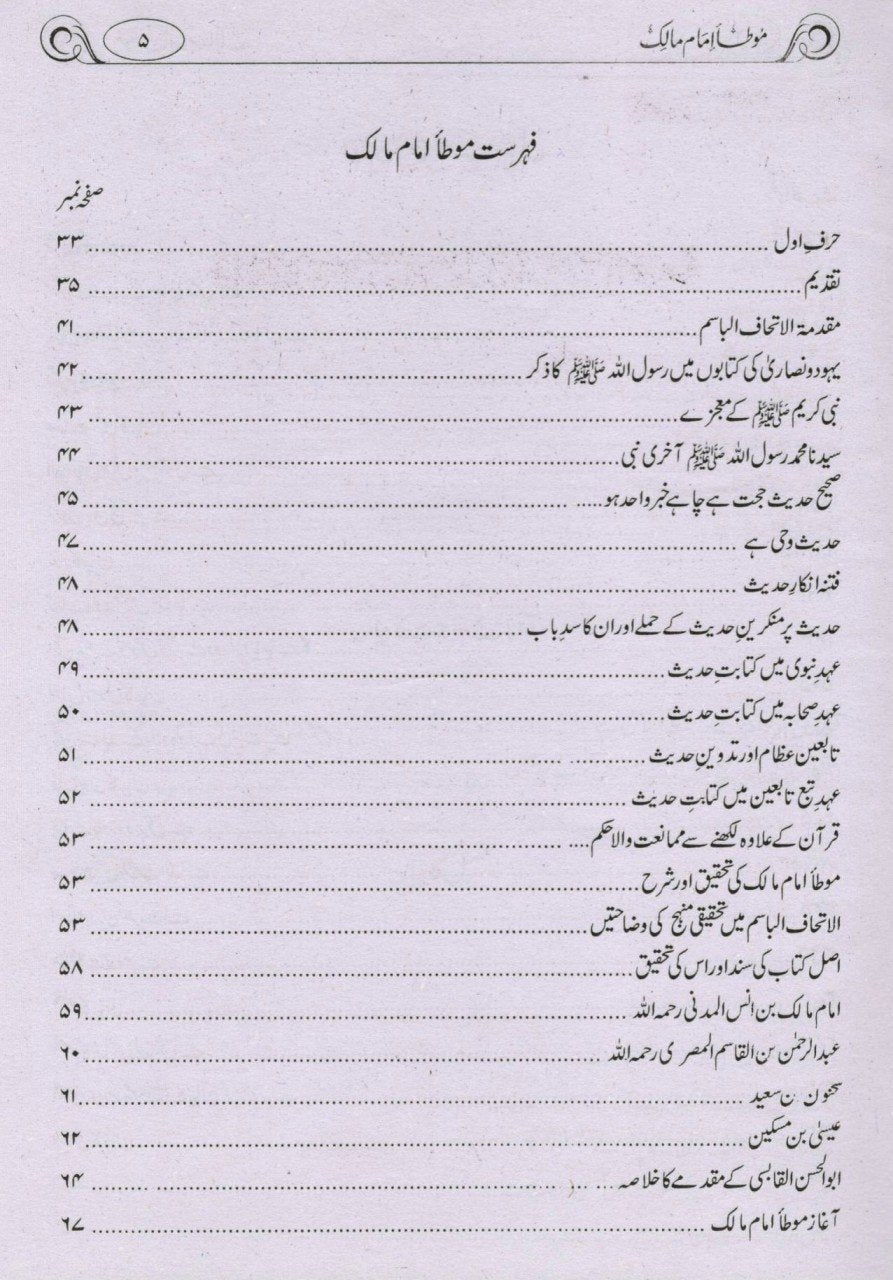 موطأ امام مالک
۵
فہرست موطأ امام مالک
صفحہ نمبر
حرفِ اول ........ ۳۳
تقدیم ........ ۳۵
مقدمۃ الاتحاف الباسم ........ ۴۱
یہود و نصاریٰ کی کتابوں میں رسول اللہ ﷺ کا ذکر ........ ۴۲
نبی کریم ﷺ کے معجزے ........ ۴۳
سیدنا محمد رسول اللہ ﷺ آخری نبی ........ ۴۴
صحیح حدیث حجت ہے چاہے خبر واحد ہو ........ ۴۵
حدیث وحی ہے ........ ۴۷
فتنہ انکارِ حدیث ........ ۴۸
حدیث پر منکرینِ حدیث کے حملے اور ان کا سدِ باب ........ ۴۸
عہدِ نبوی میں کتابتِ حدیث ........ ۴۹
عہدِ صحابہ میں کتابتِ حدیث ........ ۵۰
تابعین عظام اور تدوینِ حدیث ........ ۵۱
عہدِ تبع تابعین میں کتابتِ حدیث ........ ۵۲
قرآن کے علاوہ لکھنے سے ممانعت والا حکم ........ ۵۳
موطأ امام مالک کی تحقیق اور شرح ........ ۵۳
الاتحاف الباسم میں تحقیقی منہج کی وضاحتیں ........ ۵۳
اصل کتاب کی سند اور اس کی تحقیق ........ ۵۸
امام مالک بن انس المدنی رحمہ اللہ ........ ۵۹
عبدالرحمٰن بن القاسم المصری رحمہ اللہ ........ ۶۰
سحنون بن سعید ........ ۶۱
عیسیٰ بن مسکین ........ ۶۲
ابوالحسن القابسی کے مقدمے کا خلاصہ ........ ۶۴
آغاز موطأ امام مالک ........ ۶۷